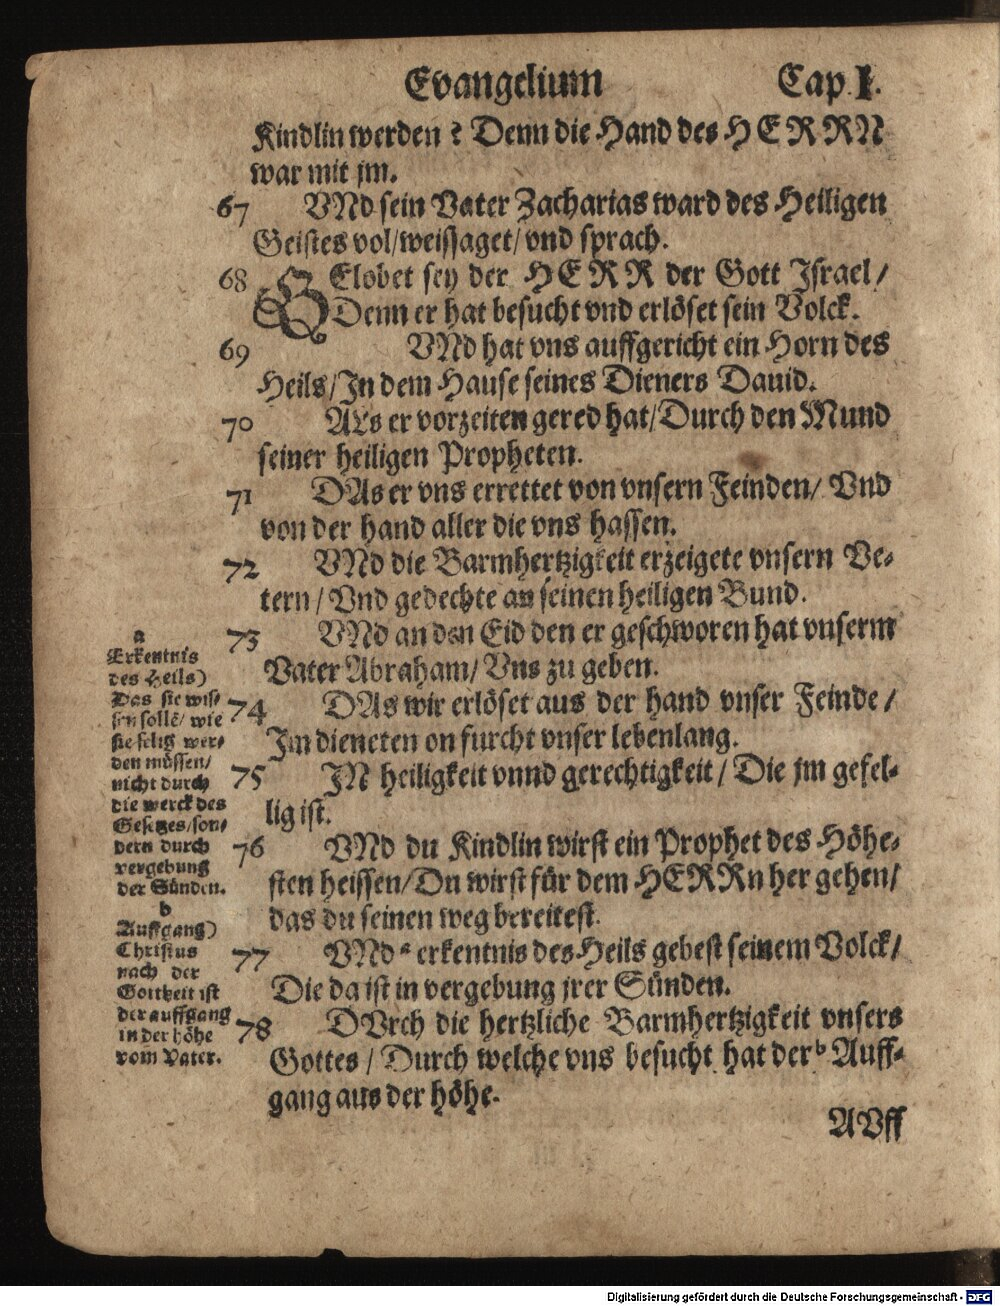 Evangelium Cap. I.
Kindlin werden? Denn die Hand des HERRN
war mit jm.
67 VNd sein Vater Zacharias ward des Heiligen
Geistes vol/weissaget/vnd sprach.
68 GElobet sey der HERR der Gott Jsrael/
Denn er hat besucht vnd erlöset sein Volck.
69 VNd hat vns auffgericht ein Horn des
Heils/Jn dem Hause seines Dieners Dauid.
70 ALs er vorzeiten gered hat/Durch den Mund
seiner heiligen Propheten.
71 DAs er vns errettet von vnsern Feinden/ Vnd
von der hand aller die vns hassen.
72 VNd die Barmhertzigkeit erzeigete vnsern Ve-
tern/ Vnd gedechte an seinen heiligen Bund.
73 VNd an den Eid den er geschworen hat vnserm
Vater Abraham/ Vns zu geben.
74 DAs wir erlöset aus der hand vnser Feinde/
Jm dieneten on furcht vnser lebenlang.
75 JN heiligkeit vnnd gerechtigkeit/ Die jm gefel-
lig ist.
76 VNd du Kindlin wirst ein Prophet des Höhe-
sten heissen/Du wirst für dem HERRn her gehen/
das du seinen weg bereitest.
77 VNd a erkentnis des Heils gebest seinem Volck/
Die da ist in vergebung jrer Sünden.
78 DVrch die hertzliche Barmhertzigkeit vnsers
Gottes/ Durch welche vns besucht hat der b Auff-
gang aus der höhe.
AVff
a
Erkentnis
des Heils)
Das sie wis-
sen sollē/ wie
sie selig wer-
den müssen/
nicht durch
die werck des
Gesetzes/son-
dern durch
vergebung
der Sünden.
b
Auffgang)
Christus
nach der
Gottheit ist
der auffgang
in der höhe
vom Vater.
Digitalisierung gefördert durch die Deutsche Forschungsgemeinschaft - DFG